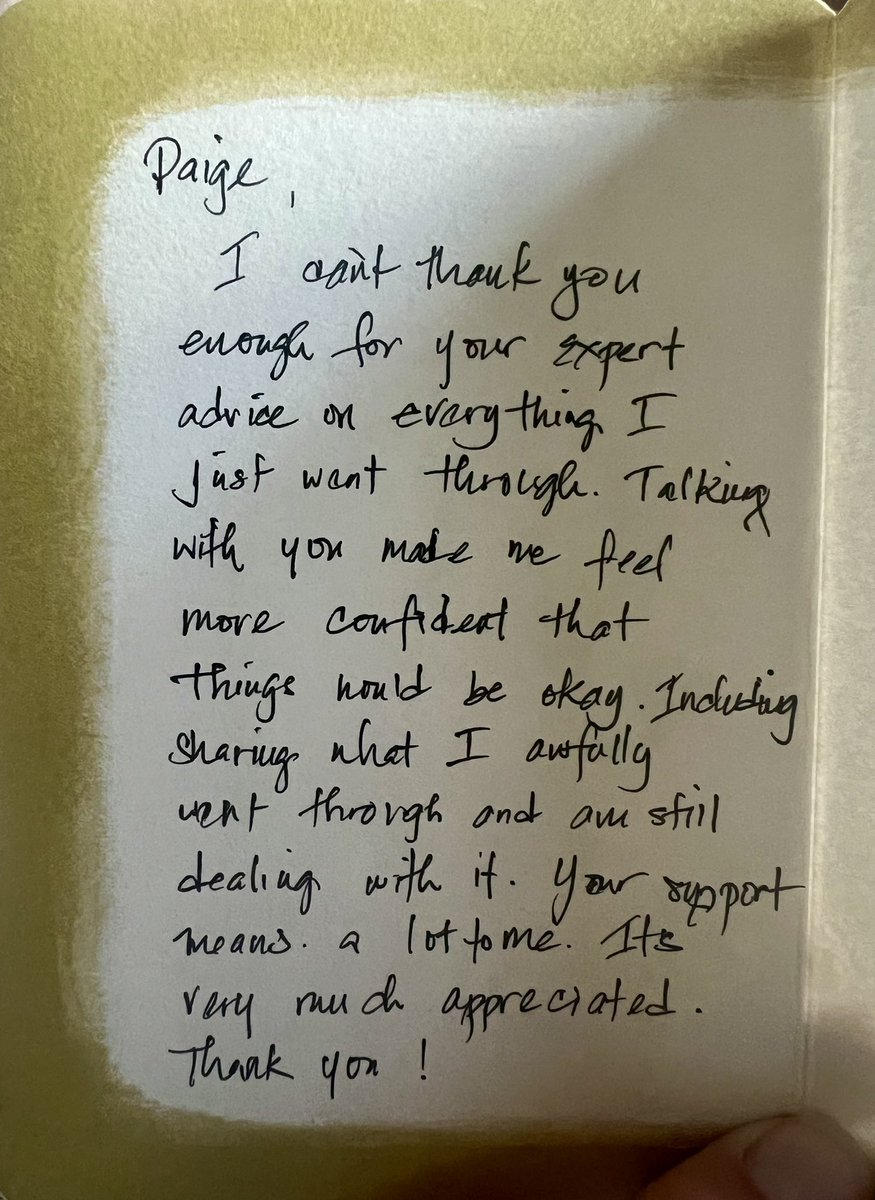 Paige,
I can't thank you
enough for your expert
advice on everything I
just went through. Talking
with you made me feel
more confident that
things would be okay. Including
sharing what I awfully
went through and am still
dealing with it. Your support
means. a lot to me. Its
very much appreciated.
Thank you!